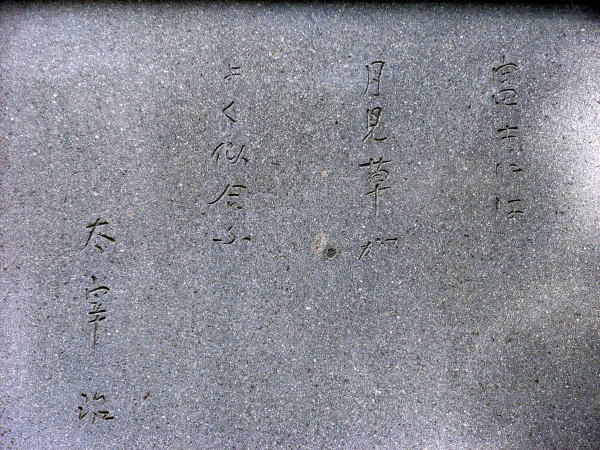 富士には
月見草が
よく似合ふ
太宰治